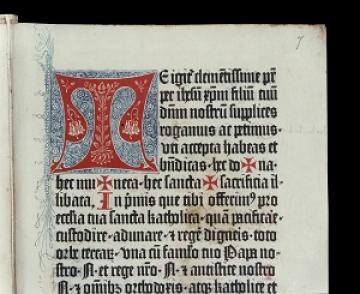 7
T E igit᷑ clemētissime pr̄
per ihesū xp̄m filiū tuū
dn̄m nostrū supplices
rogamus ac petimus·
vti accepta habeas et
bn̄dicas· hec do✠na·
hec mu✠nera· hec sancta✠sacrificia il-
libata, In p̄mis que tibi offerim⁹ pro
ecclīa tua sancta katholica· quā pacificare·
custodire· adunare· ⁊ regē digneris· toto
orbe terraꝝ· vna cū famłō tuo Papa no-
stro ·N· et rege nr̄o ·N· ⁊ antistite nostro
·N· ⁊ om̄ibꝫ orthodoxis· atqꝫ katholice et